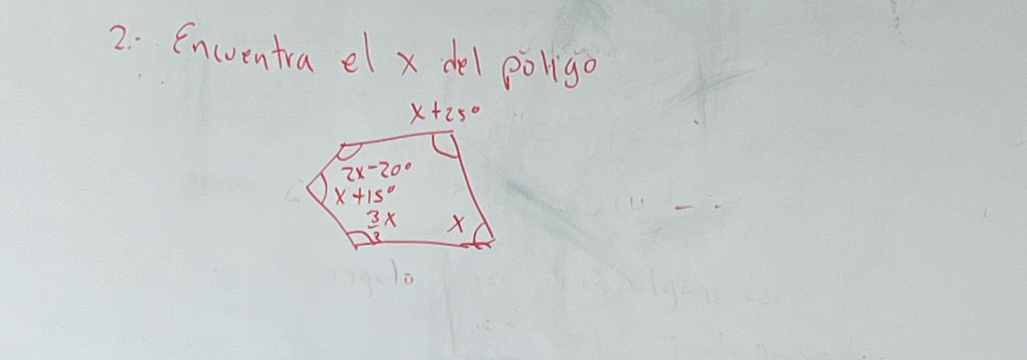 2.- Encuentra el x del póligo
x+25°
2x-20°
x+15°
x